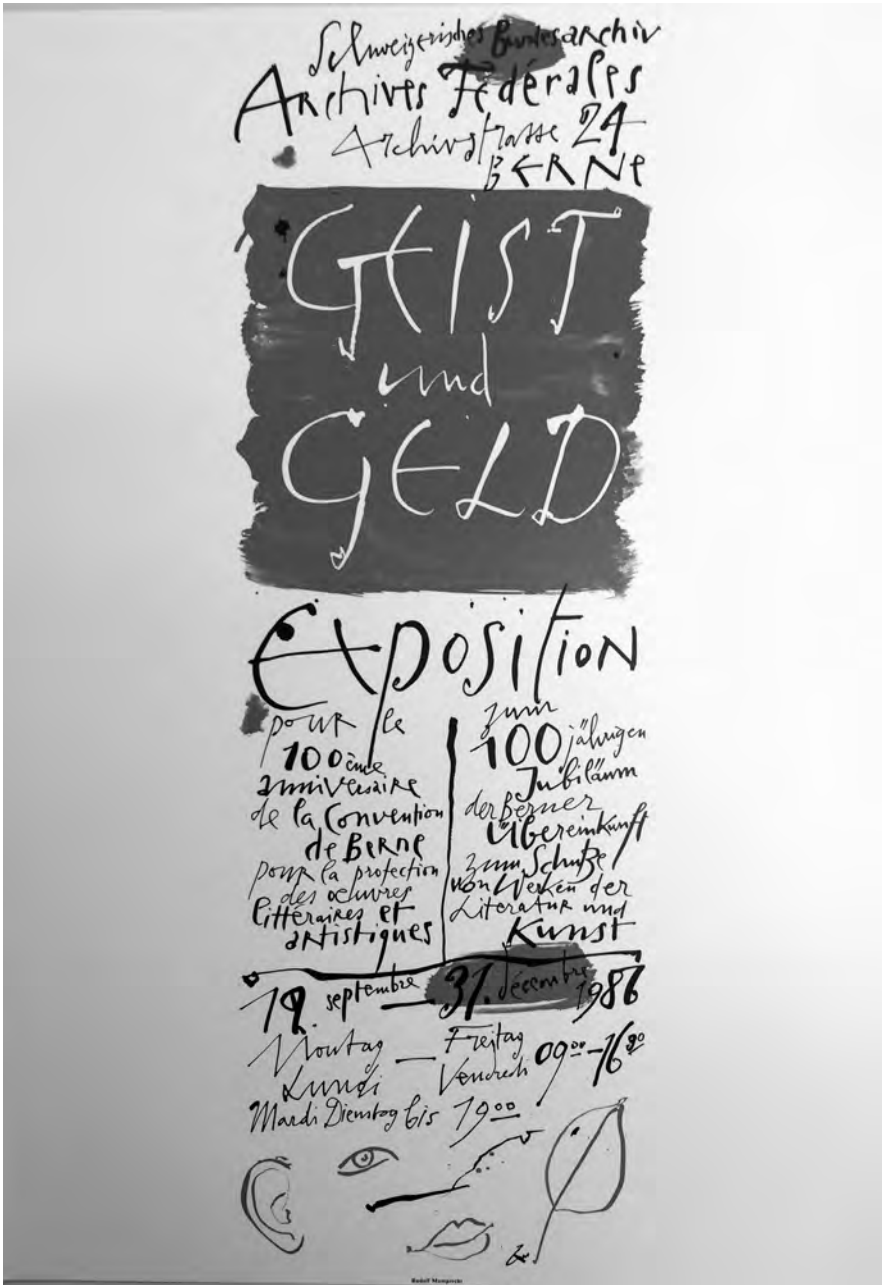 Schweizerisches Bundesarchiv
Archives Fédérales
Archivstrasse 24
BERNE
GEIST
und
GELD
Exposition
pour le
100ème
anniversaire
de la Convention
de Berne
pour la protection
des œuvres
littéraires et
artistiques
zum
100 jährigen
Jubiläum
der Berner
Übereinkunft
zum Schutze
von Werken der
Literatur und
Kunst
19. septembre — 31. décembre 1986
Montag — Freitag 09 00 – 16 30
Lundi Vendredi
Mardi Dienstag bis 19 00
Rudolf Mumprecht